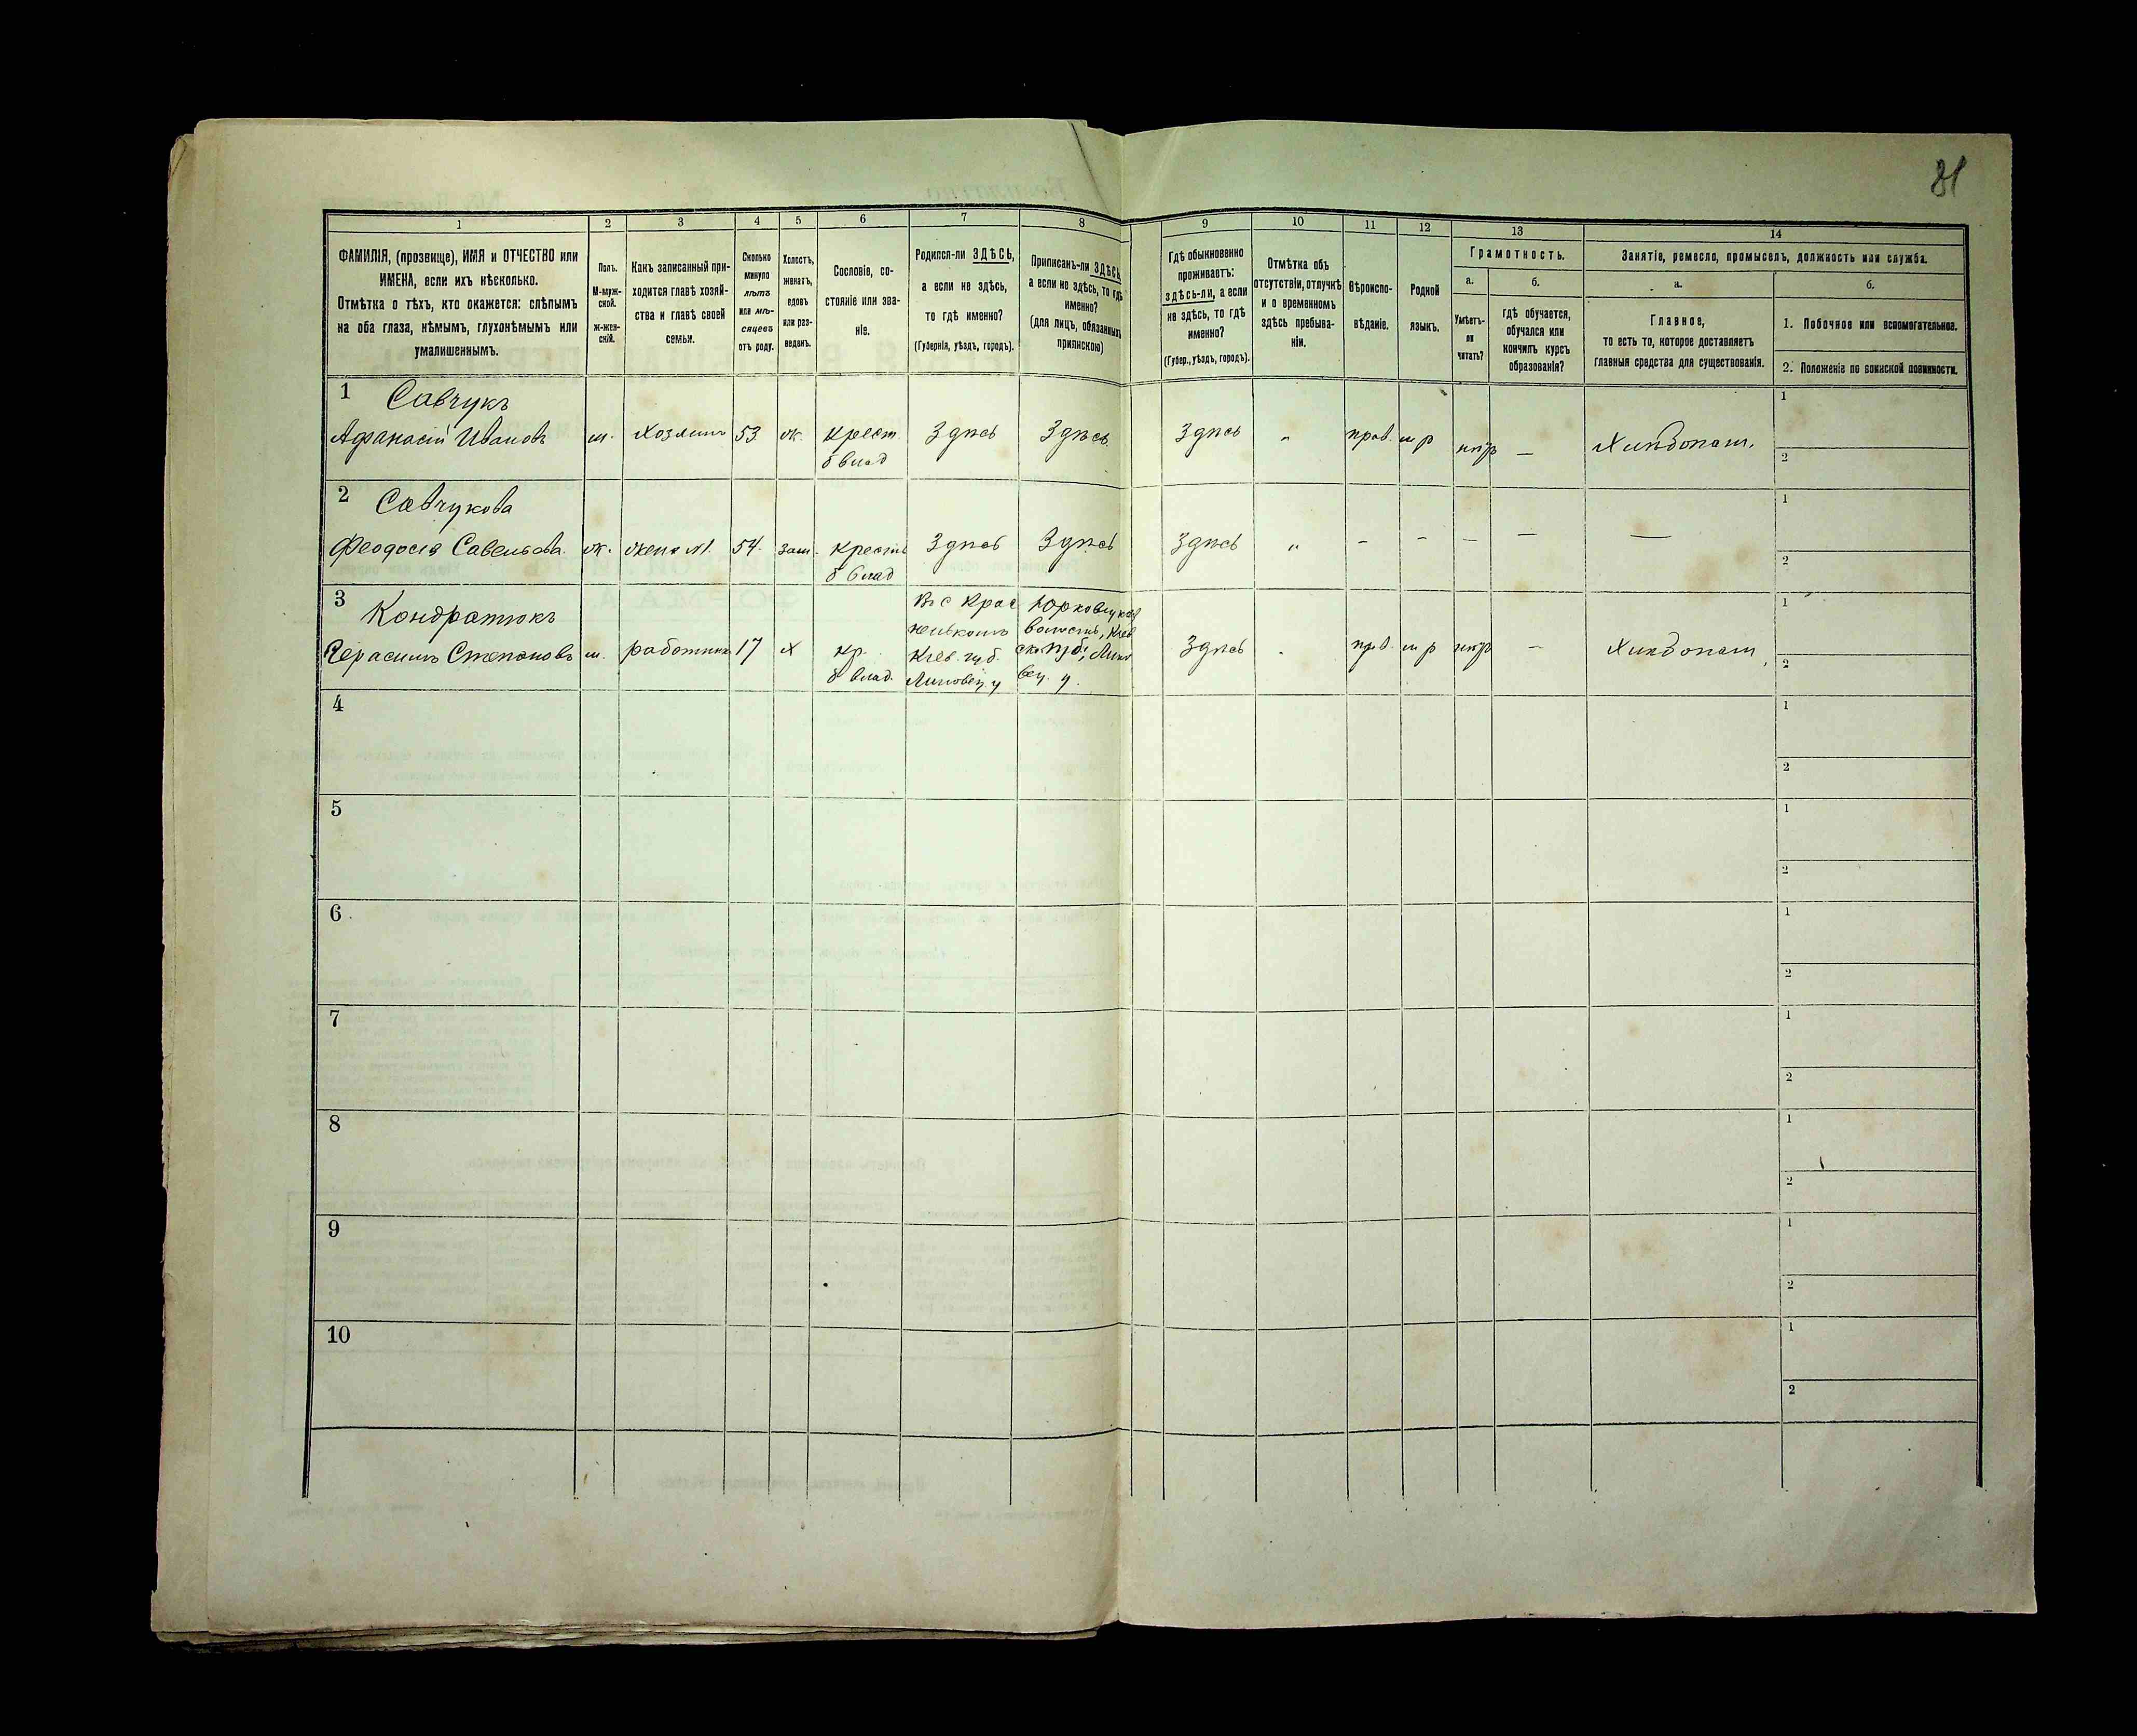 81
1 2 3 4 5 6 7 8 9 10 11 12 13 14
ФАМИЛІЯ, (прозвище), ИМЯ и ОТЧЕСТВО или
ИМЕНА, если ихъ нѣсколько.
Отмѣтка о тѣхъ, кто окажется: слѣпымъ
на оба глаза, нѣмымъ, глухонѣмымъ или
умалишеннымъ.
Полъ.
М-муж-
ской.
ж-жен-
скій.
Какъ записанный при-
ходится главѣ хозяй-
ства и главѣ своей
семьи.
Сколько
минуло
лѣтъ
или мѣ-
сяцевъ
отъ роду.
Холостъ,
женатъ,
вдовъ
или раз-
веденъ.
Сословіе, со-
стояніе или зва-
ніе.
Родился-ли ЗДѢСЬ,
а если не здѣсь,
то гдѣ именно?
(Губернія, уѣздъ, городъ).
Приписанъ-ли ЗДѢСЬ,
а если не здѣсь, то гдѣ
именно?
(для лицъ, обязанныхъ
припискою)
Гдѣ обыкновенно
проживаетъ:
здѣсь-ли, а если
не здѣсь, то гдѣ
именно?
(Губер., уѣздъ, городъ).
Отмѣтка объ
отсутствіи, отлучкѣ
и о временномъ
здѣсь пребыва-
ніи.
Вѣроиспо-
вѣданіе.
Родной
языкъ.
Грамотность.
а.
Умѣетъ-
ли
читать?
б.
гдѣ обучается,
обучался или
кончилъ курсъ
образованія?
Занятіе, ремесло, промыселъ, должность или служба.
а.
Главное,
то есть то, которое доставляетъ
главныя средства для существованія.
б.
1. Побочное или вспомогательное.
2. Положеніе по воинской повинности.
1 Савчукъ
Афанасій Ивановъ м. Хозяинъ 53 ж. Крест. Здѣсь Здѣсь Здѣсь „ прав. м р нѣтъ — Хлѣбопаш.
б влад
1
2
2 Савчукова
Феодосія Савельева ж. жена №1. 54. зам. Крестн Здѣсь Здѣсь Здѣсь „ - - - — —
б влад
1
2
3 Кондратюкъ
Герасимъ Степановъ м. работникъ 17 х кр. Здѣсь прав. м р нѣтъ — Хлѣбопаш,
б влад.
Въ с Крас
Кіев. губ.
Липовец у
волость, Кіев
ск. губ., Липо
вец. у.
1
2
4
1
2
5
1
2
6
1
2
7
1
2
8
1
2
9
1
2
10
1
2